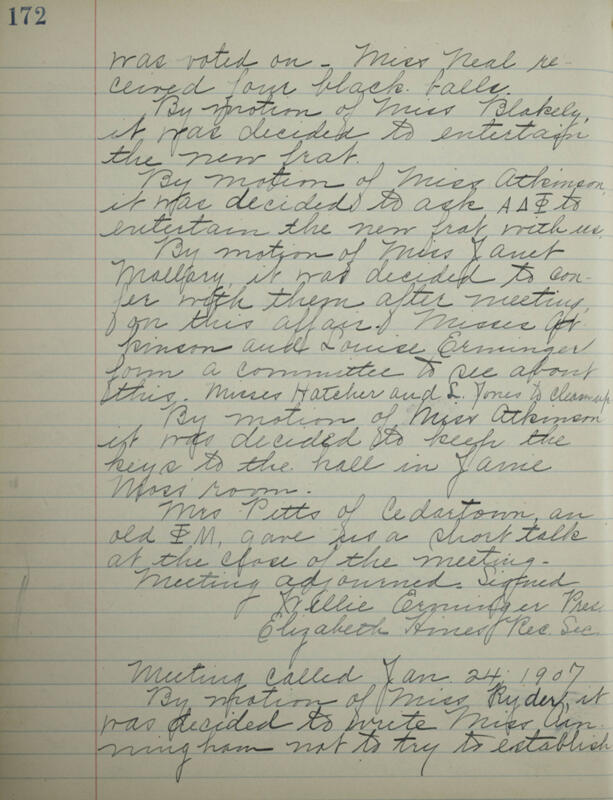 172
was voted on - Miss Neal re-
ceived four black balls.
By motion of Miss Blakely,
it was decided to entertain
the new frat.
By motion of Miss Atkinson
it was decided to ask ΑΔΦ to
entertain the new frat with us.
By motion of Miss Janet
Mallary, it was decided to con-
fer with them after meeting,
on this affair. Misses At-
kinson and Louise Erminger
form a committee to see about
this. Misses Hatcher and L. Jones to clean up
By motion of Miss Atkinson
it was decided to keep the
keys to the hall in Janie
Moss' room.
Mrs Pitts of Cedartown, an
old ΦM, gave us a short talk
at the close of the meeting-
Meeting adjourned. Signed
Willie Erminger Pres.
Elizabeth Hines Rec. Sec.
Meeting called Jan. 24, 1907
By motion of Miss Ryder, it
was decided to write Miss Cun-
ningham not to try to establish